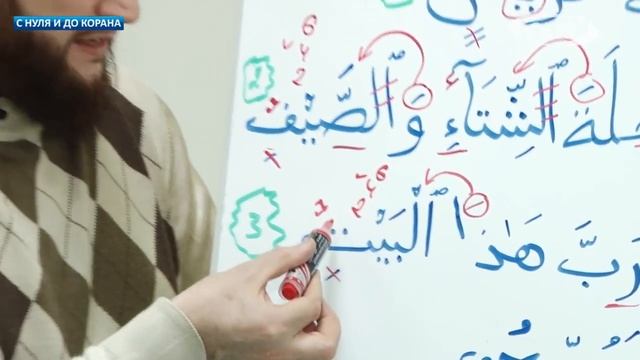 С НУЛЯ И ДО КОРАНА
6
4
2
حلَةَ الشِّتَآءِ وَالصَّيْف 2
2 4 6
رَبَّ هَٰذَا الْبَيْت 3